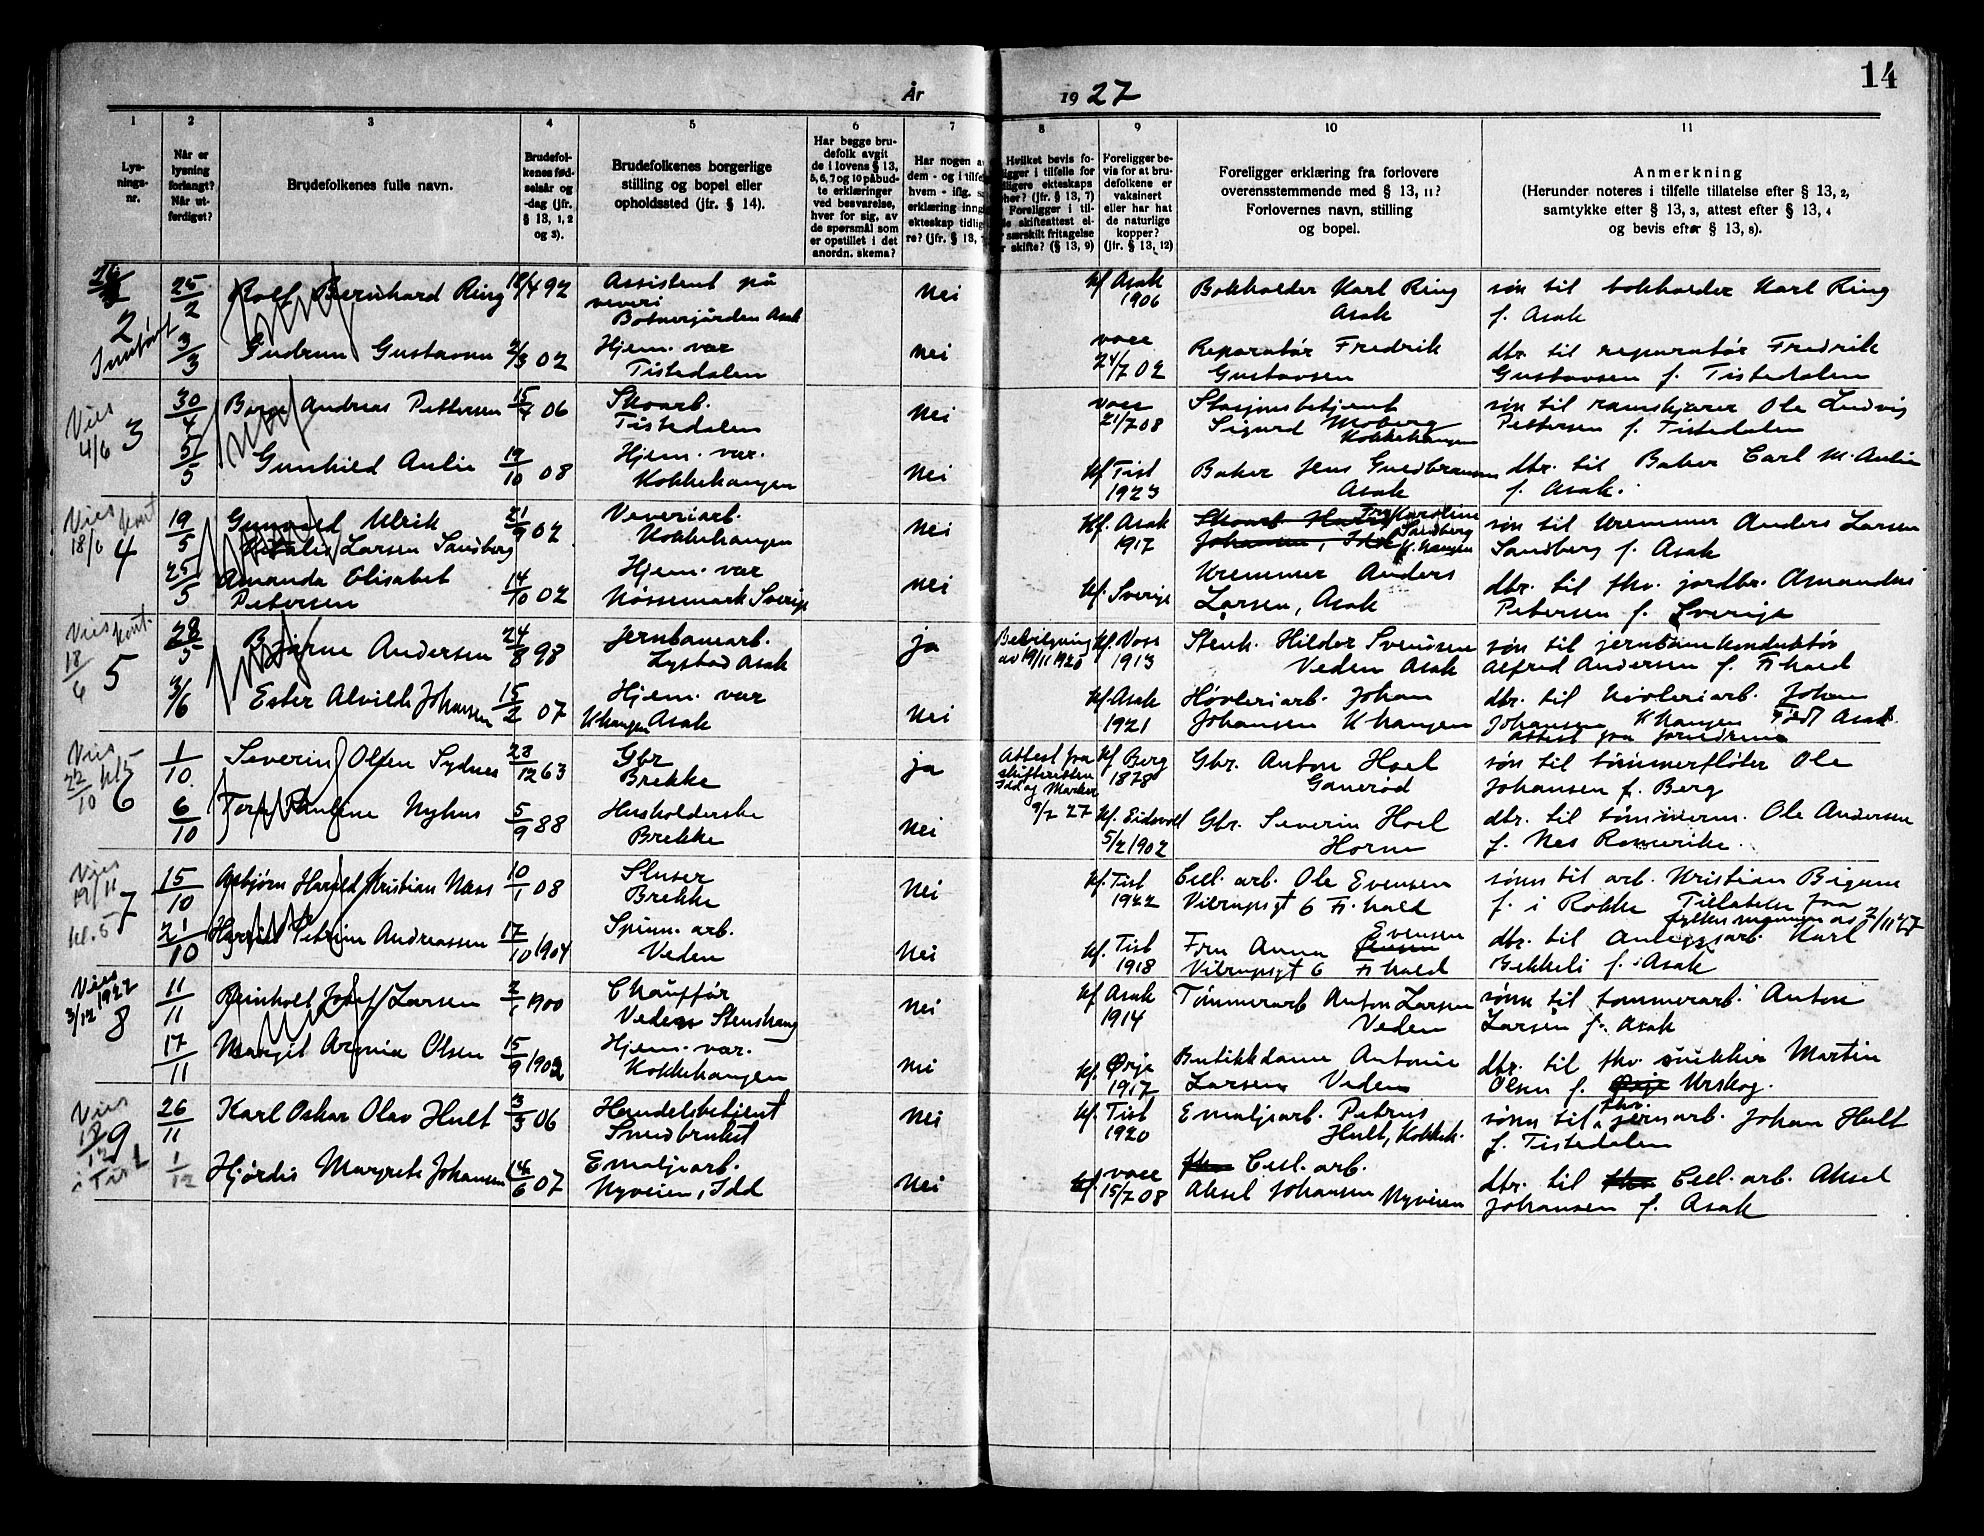 14
År 1927
1 2 3 4 5 6 7 8 9 10 11
Lys-
nings-
nr.
Når er
lysning
forlangt?
Når ut-
ferdiget?
Brudefolkenes fulle navn.
Brudefol-
kenes fød-
selsår og
-dag (jfr.
§ 13, 1, 2
og 3).
Brudefolkenes borgerlige
stilling og bopel eller
opholdssted (jfr. § 14).
Har begge bru-
defolk avgit
de i lovens § 13,
5, 6, 7 og 10 påbud-
te erklæringer
ved besvarelse,
hver for sig, av
de spørsmål som
er opstillet i det
anordn. skema?
Har nogen av
dem - og i tilfe
hvem - iflg. s
erklæring inng
ekteskap tidlig
re? (jfr. § 13,
Hvilket bevis fo-
ligger i tilfelle for
ligere ekteskaps
her? (jfr. § 13, 7)
Foreligger i til-
le skifteattest el-
særskilt fritagelse
skifte? (§ 13, 9)
Foreligger be-
vis for at bru-
defolkene er
vaksinert
eller har hat
de naturlige
kopper?
(jfr. § 13, 12)
Foreligger erklæring fra forlovere
overensstemmende med § 13, 11?
Forlovernes navn, stilling
og bopel.
Anmerkning
(Herunder noteres i tilfelle tillatelse efter § 13, 2,
samtykke efter § 13, 3, attest efter § 13, 4
og bevis efter § 13, 8).
2
25/2 Rolf Bernhard Ring 18/4 92 Assistent på
veveri
Asak
nei kf Asak
1906
Bokholder Karl Ring
Asak
søn til bokholder Karl Ring
f. Asak
3/3 Gudrun Gustavsen 2/3 02 Hjem. vær
Tistedalen
nei vacc
24/7 02
Reparatør Fredrik
Gustavsen
dtr. til reparatør Fredrik
Gustavsen f. Tistedalen
Vies
4/6 3
30/4 Andreas Pettersen 15/7 06 Skoarb.
Tistedalen
nei vacc
21/7 08
Stasjonsbetjent
Sigurd Moberg
Kokkehaugen
søn til Ole Ludvig
Pettersen f. Tistedalen
5/5 Gunhild Aulie 19/10 08 Hjem. vær.
Kokkehaugen
nei kf Tist
1923
Baker Jens Guldbransen
Asak
dtr. til Baker Carl M. Aulie
f. Asak.
Vies kont
18/6 4
19/5 Ulrik
Larsen Sandberg
21/9 02 Veveriarb.
Kokkehaugen
nei kf. Asak
1917
Skoarb. Harry
Johansen, Idd
Fru Karoline
Sandberg
K. haugen
søn til kremmer Anders Larsen
Sandberg f. Asak
25/5 Amanda Elisabet
Petersen
14/10 02 Hjem. vær
Nössemark Sverige
nei kf. Sverige
Kremmer Anders
Larsen, Asak
dtr. til fhv. jordbr. Amandus
Petersen f. Sverige
Vies kont.
18/6 5
28/5 Bjarne Andersen 24/8 98 Jernbanearb.
Lystad Asak
ja Bekvilgning
av 19/11 1920
kf. Voss
1913
Stenh. Hilder Svendsen
Veden Asak
søn til jernbanekonduktør
Alfred Andersen f. Fr.hald
3/6 Ester Alvilde Johansen 15/2 07 Hjem. vær
K.haugen Asak
nei kf. Asak
1921
Høvleriarb. Johan
Johansen K.haugen
dtr. til høvleriarb. Johan
Johansen K.haugen Født Asak.
Attest fra foreldrene
Vies
22/10 kl 5 6
1/10 Severin Olsen Sydnes 28/12 63 Gbr
Brekke
ja Attest fra
skifteretten
Idd og Marker
9/2 27
kf Berg
1878
Gbr. Anton Hoel
Ganerød
søn til tømmerfløter Ole
Johansen f. Berg
6/10 Pauline Nyhus 5/9 88 Husholderske
Brekke
nei kf. Eidsvoll
5/2 1902
Gbr. Severin Hoel
Horne
dtr. til tømmerm. Ole Andersen
f. Nes Romerike.
Vies
19/11
kl. 5 7
15/10 Asbjørn Harald Kristian Næss 10/1 08 Sluser
Brekke
nei kf. Tist
1922
Cell. arb. Ole Evensen
Vibrupsgt 6 Fr. hald
sønn til arb. Kristian
f. i Rokke Tillatelse fra
fylkesmannen av 7/11 27
21/10 Petrine Andreassen 17/10 1904 Spinn. arb.
Veden
nei kf. Tist
1918
Fru Anna Jensen Evensen
Vibrupsgt 6 Fr hald
dtr. til Anleggsarb. Karl
Bekkeli f. i Asak
Vies
3/12 1927 8
11/11 Reinholt Josef Larsen 2/1 1900 Chauffør
Veden
nei kf. Asak
1914
Tømmerarb Anton Larsen
Veden
sønn til tømmerarb. Anton
Larsen f. Asak
17/11 Margit Olsen 15/9 1902 Hjem. vær.
Kokkehaugen
nei kf. Ørje
1917
Butikkdame Antonie
Larsen Veden
dtr. til fhv. snikker Martin
Olsen f. Ørje Urskog.
Vies
18/12 9
i Tist
26/11 Karl Oskar Olav Hult 3/3 06 Handelsbetjent
Smedbrukst
nei kf. Tist
1920
Emaljearb. Petrus
Hult, Kokkeh.
sønn til fhv. jernarb. Johan Hult
f. Tistedalen
1/12 Hjørdis Margrete Johansen 14/6 07 Emaljearb.
Nyveien, Idd
nei kf. vacc
15/7 08
fhv Cell. arb.
Aksel Johansen Nyveien
dtr. til fhv Cell. arb. Aksel
Johansen f. Asak